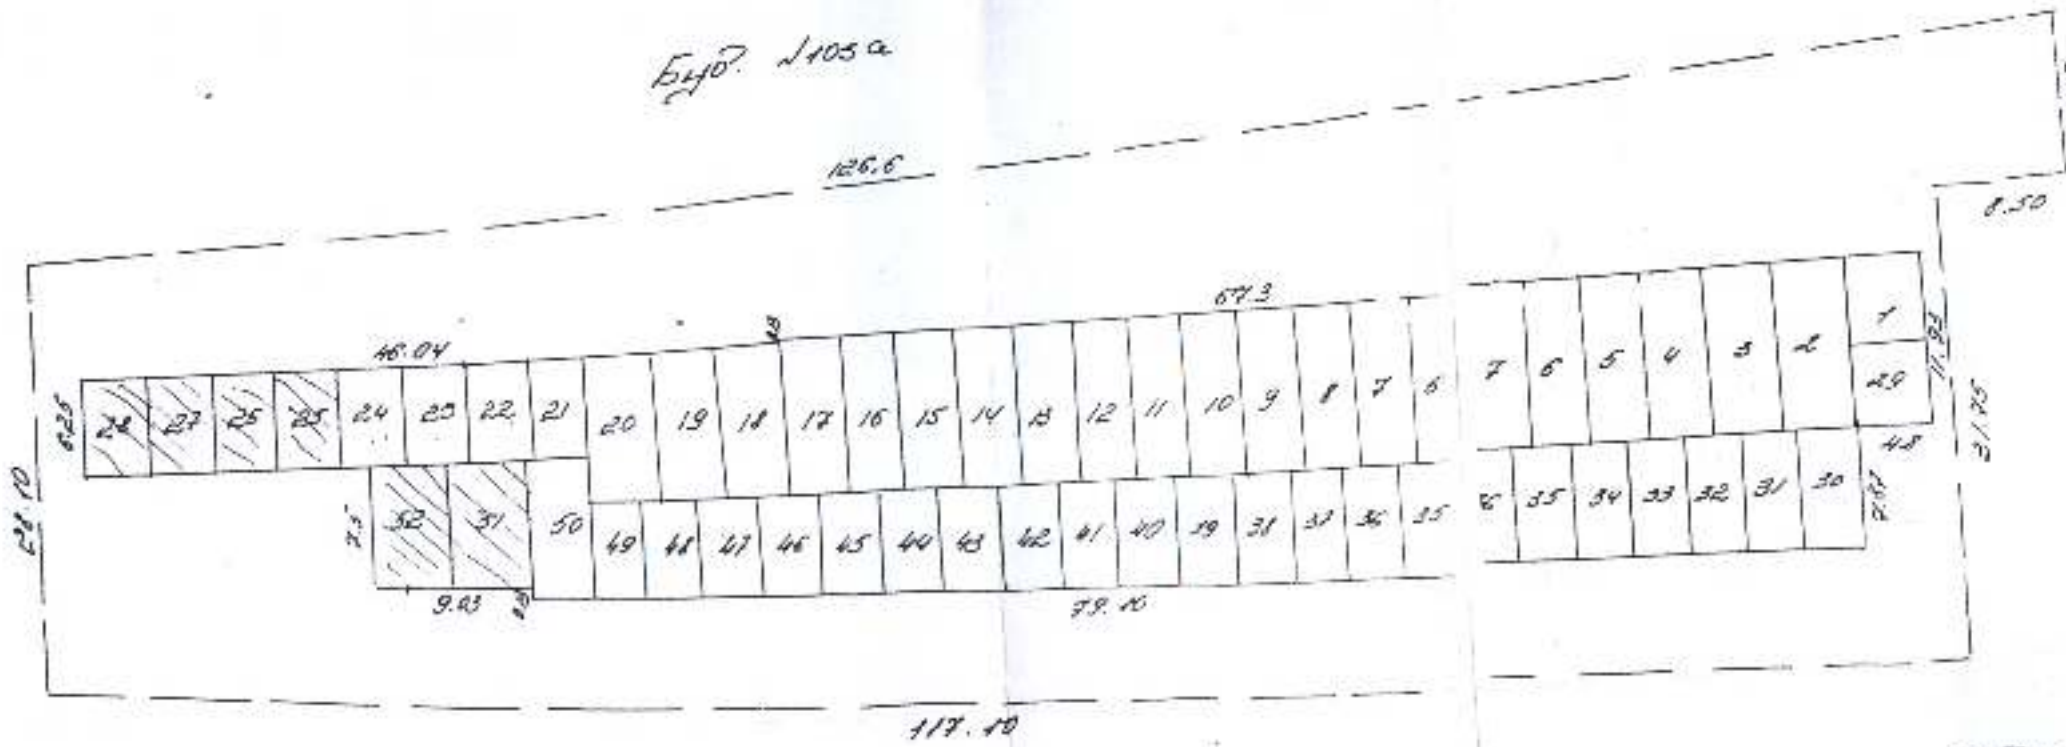 Буд. №103а
126.6
8.50
67.3
46.04
6.25
28 27 26 25 24 23 22 21 20 19 18 17 16 15 14 13 12 11 10 9 8 7 6 7 6 5 4 3 2 1
29
11.95
4.8
31.75
28.10
7.5
52 51 50 49 48 47 46 45 44 43 42 41 40 39 38 37 36 35 36 35 34 33 32 31 30
7.37
9.03
79.10
117.10